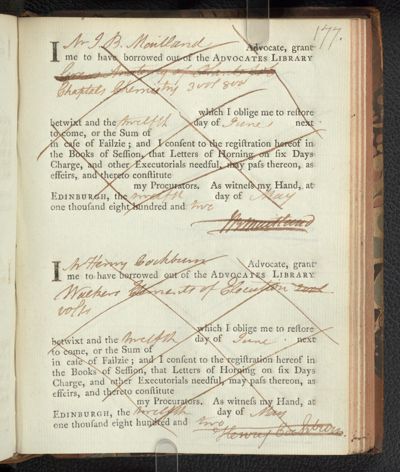 177.
I Mr J. B. Maitland Advocate, grant
me to have borrowed out of the ADVOCATES LIBRARY
Chaptals Chemistry 3 vol 8vo
which I oblige me to restore
betwixt and the twelfth day of June next
to come, or the Sum of
in case of Failzie; and I consent to the registration hereof in
the Books of Session, that Letters of Horning on six Days
Charge, and other Executorials needful, may pass thereon, as
effeirs, and thereto constitute
my Procurators. As witness my Hand, at
EDINBURGH, the twelfth day of May
one thousand eight hundred and two
I Mr Henry Cockburn Advocate, grant
me to have borrowed out of the ADVOCATES LIBRARY
Walkers Elements of Elocution
vols
which I oblige me to restore
betwixt and the twelfth day of June next
to come, or the Sum of
in case of Failzie; and I consent to the registration hereof in
the Books of Session, that Letters of Horning on six Days
Charge, and other Executorials needful, may pass thereon, as
effeirs, and thereto constitute
my Procurators. As witness my Hand, at
EDINBURGH, the twelfth day of May
one thousand eight hundred and two
Henry Cockburn